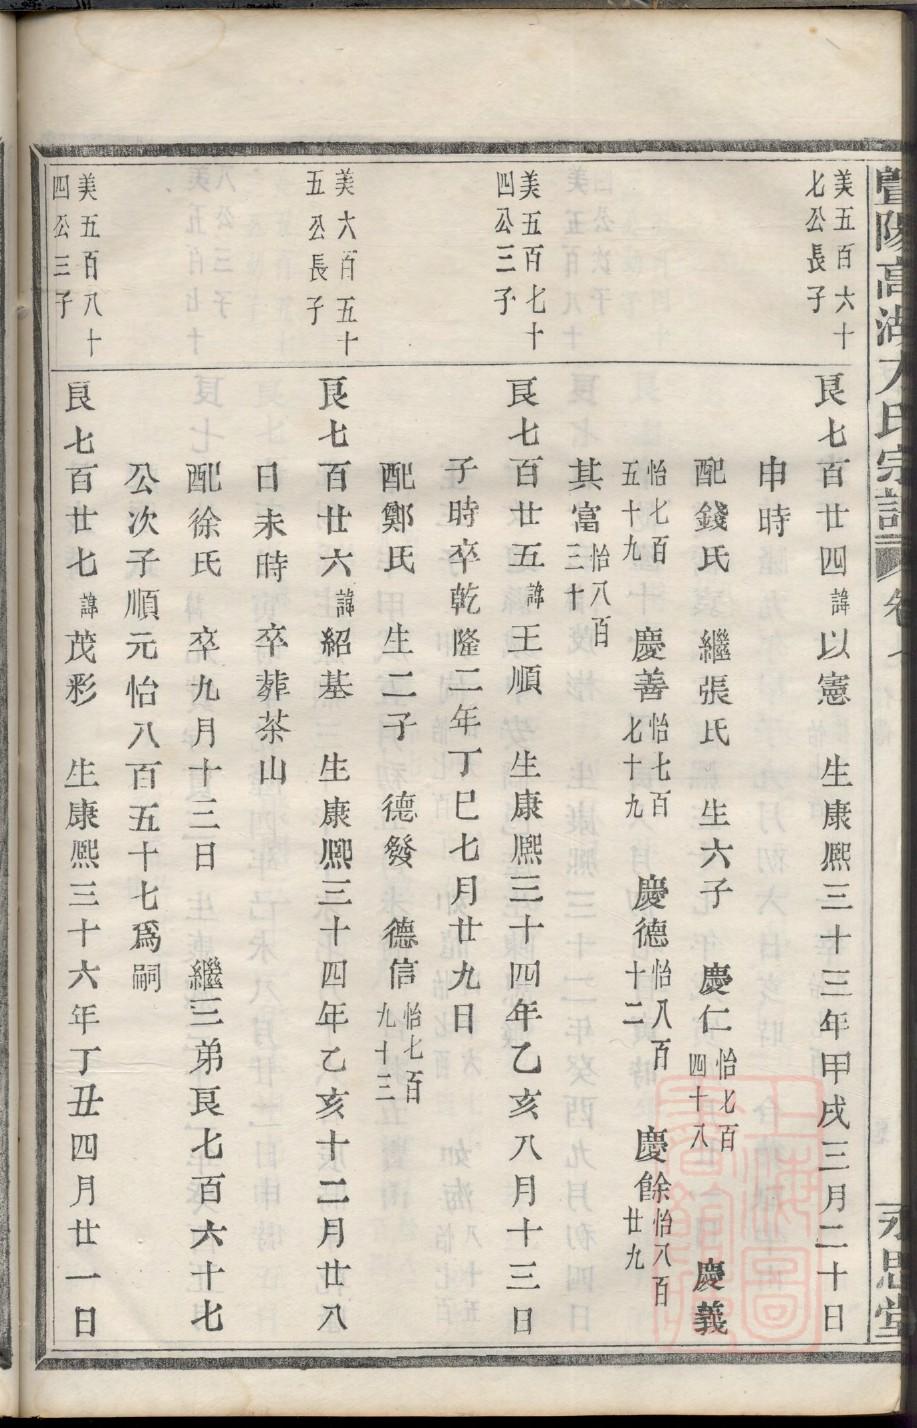 暨陽高湖 氏宗譜 卷七 永思堂
美五百六十
七公長子
良七百廿四諱以憲 生康熙三十三年甲戌三月二十日
申時
配錢氏 繼張氏 生六子 慶仁怡七百四十八 慶義
怡七百五十九 慶善怡七百七十九 慶德怡八百十二 慶餘怡八百廿九
其富怡八百三十
美五百七十
四公三子
良七百廿五諱王順 生康熙三十四年乙亥八月十三日
子時卒乾隆二年丁巳七月廿九日
配鄭氏 生二子 德發 德信怡七百九十三
美六百五十
五公長子
良七百廿六諱紹基 生康熙三十四年乙亥十二月廿八
日未時 卒葬茶山
配徐氏 卒九月十三日 繼三弟良七百六十七
公次子順元怡八百五十七爲嗣
美五百八十
四公三子
良七百廿七諱茂彩 生康熙三十六年丁丑四月廿一日